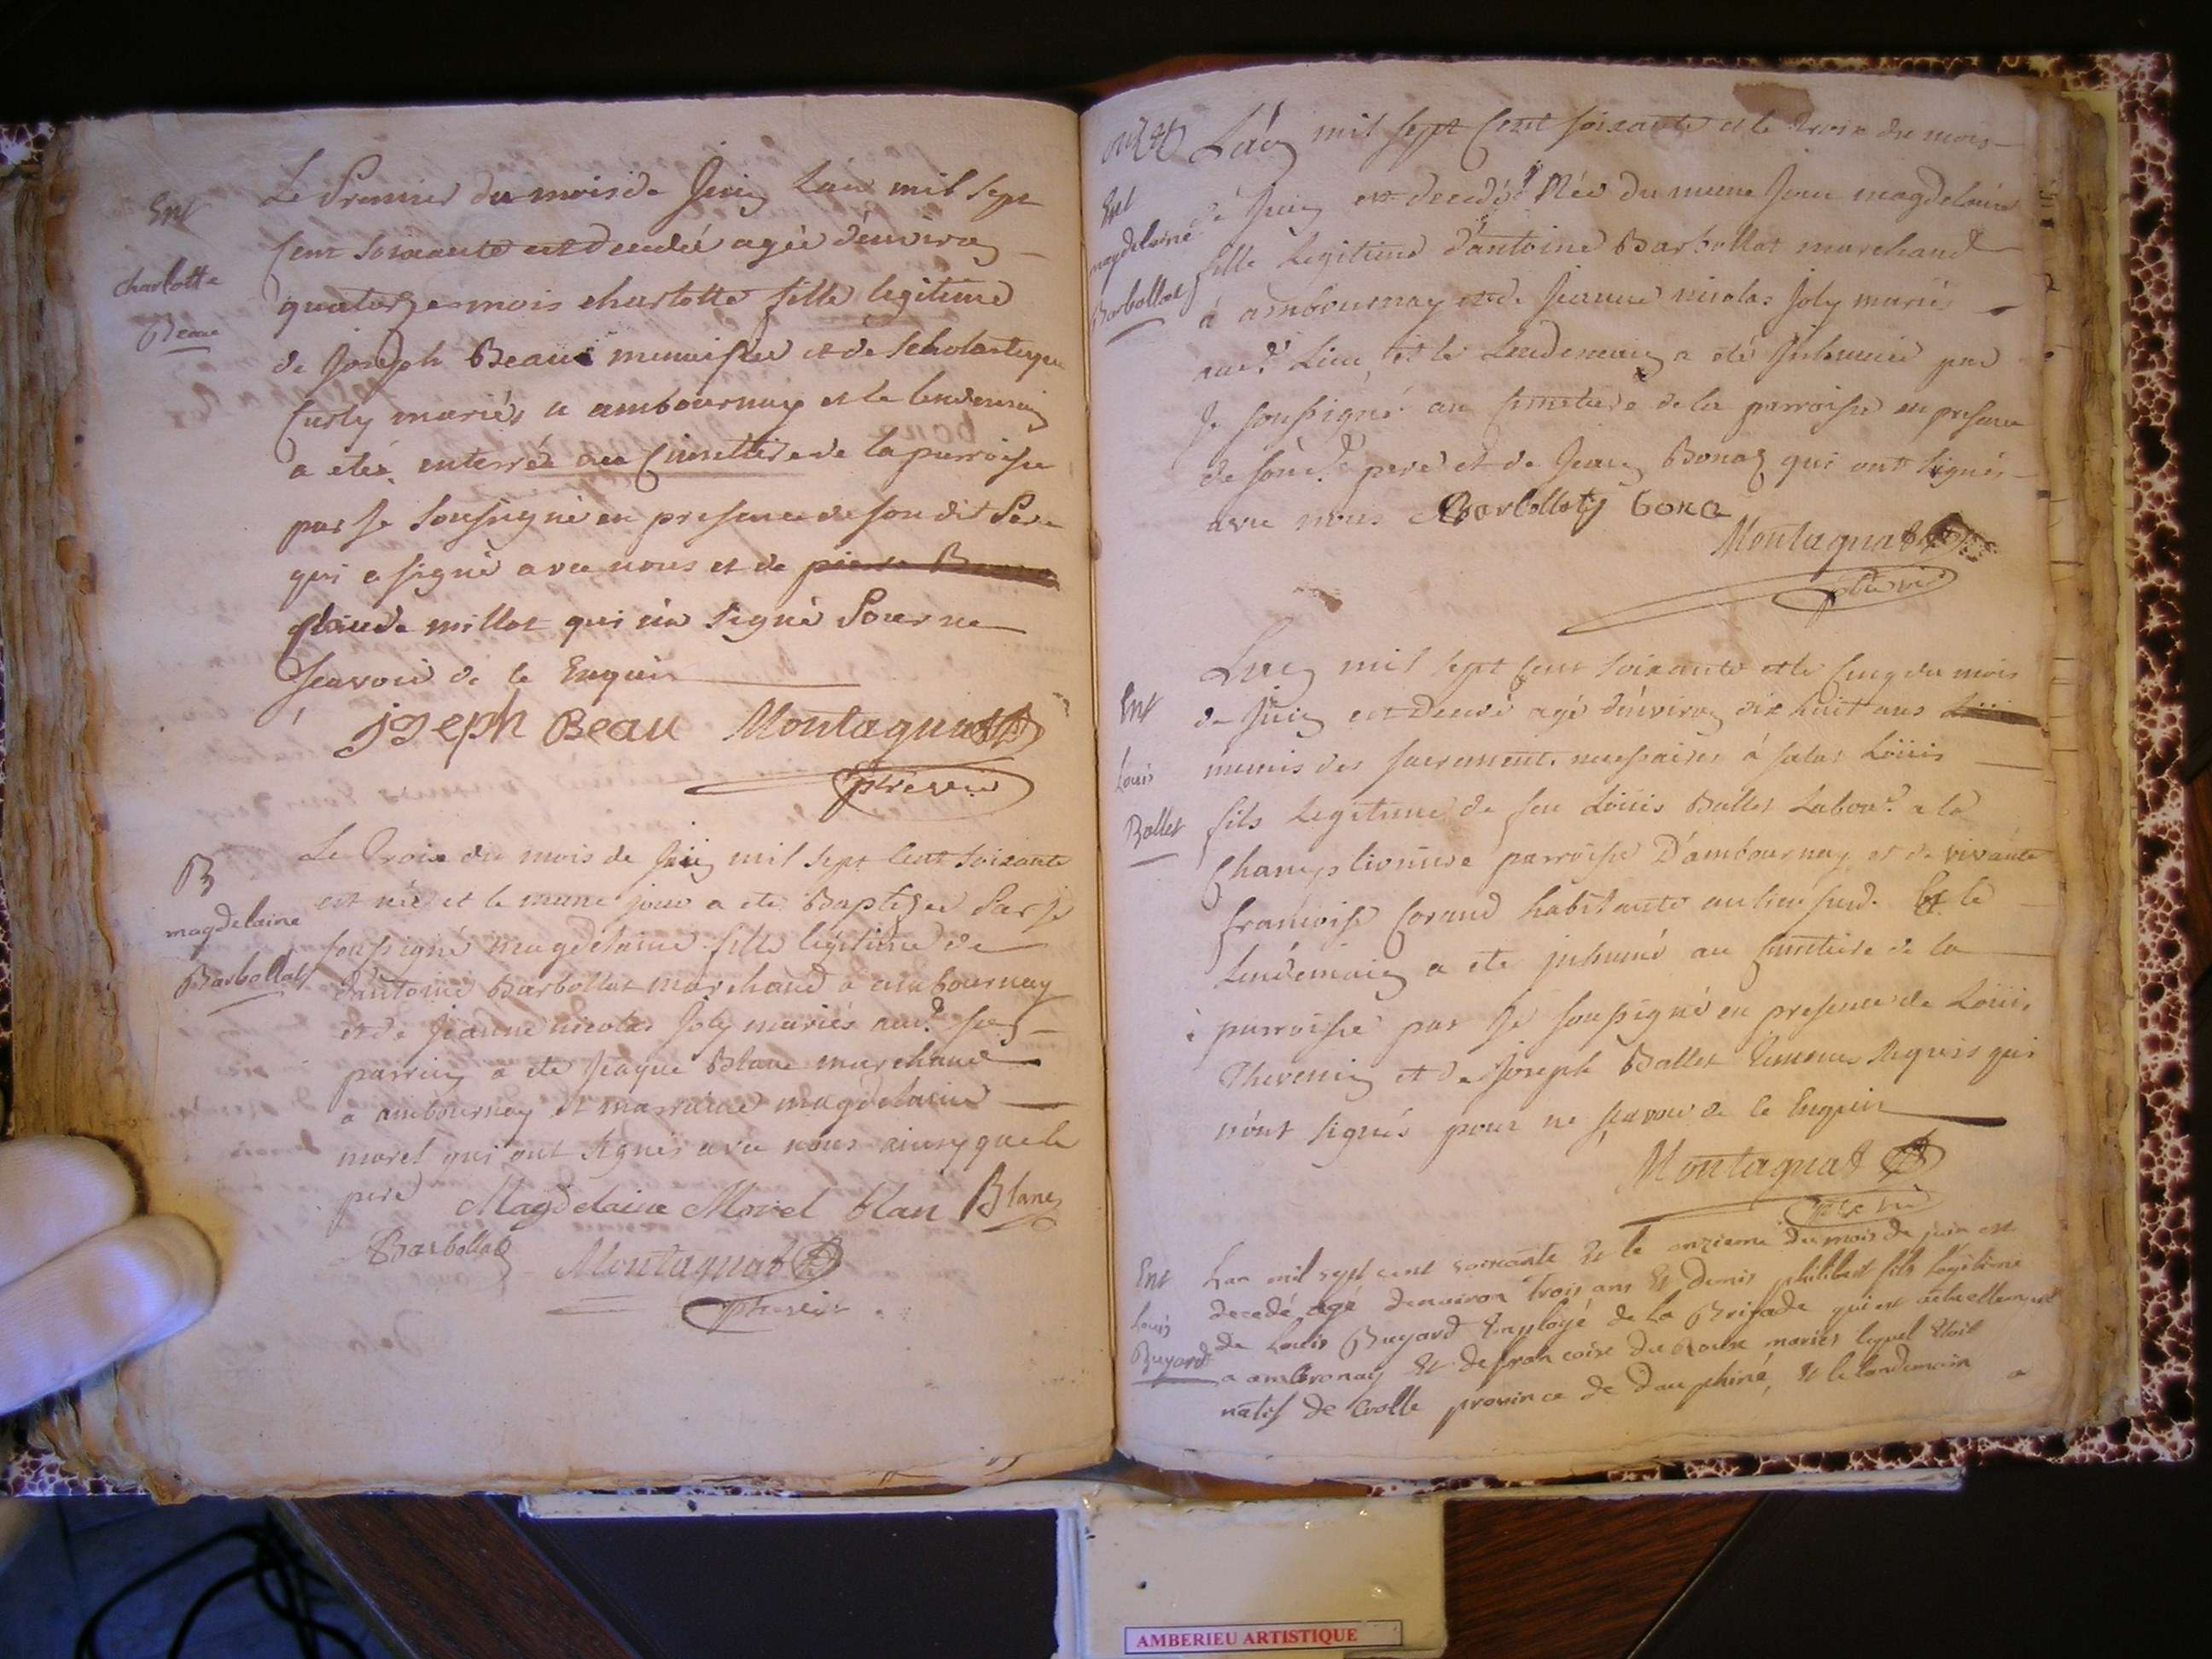 Ent
charlotte
Beau
Le Premier du mois de Juin L'an mil sept
Cent soixante est decedée agée d'environ
quatorze mois charlotte fille legitime
de Joseph Beau menuisier et de Scholastique
Curty mariés a ambournay et le lendemain
a eteé enterrée au Cimettiere de la parroisse
par Je soussigné en presence de son dit Pere
qui a signé avec nous et de pierre
Claude millet qui n'a signé Pour ne
sçavoir de ce Enquis
joseph Beau Montagnat
ptre vic
B
magdelaine
Barbollat
Le Trois du mois de Juin mil sept Cent soixante
est née et le meme jour a ete Baptizée Par Je
soussigné magdelaine fille legitime de
d'antoine Barbollat marchand a ambournay
et de Jeanne nicolas Joly mariés aud.
parrain a ete Jeaque Blanc marchand
a ambournay et marraine magdelaine
morel qui ont signés avec nous ainsy que le
pere Magdelaine Morel blan Blanc
Barbollat Montagnat
ptre vic
Ent
magdelaine
Barbollat
L'an mil sept Cent soixante et le trois du mois
de Juin est decedée Née du meme Jour magdelaine
fille Legitime d'antoine Barbollat marchand
á ambournay et de Jeanne nicolas Joly mariés
aud. Lieu, et le Lendemain a eté Inhumée par
Je soussigné au cimetiere de la parroisse en presence
de son d. pere et de Jean Bonaz qui ont signés
avec nous Barbollat bona
Montagnat
ptre vic
Ent
Louis
Ballet
L'an mil sept Cent soixante et le Cinq du mois
de Juin est Decedé agé d'environ dix huit ans
munis des sacrements necessaires á salut Loüis
fils Legitime de feu Loüis Ballet Labour. a la
Champtionniere parroisse D'ambournay et de vivante
francoise Corand habitante au lieu sud. Et le
Lendemain a ete inhumé au cimetiere de la
parroisse par Je soussigné en presence de Loüis
Thevenin et de Joseph Ballet temoins Requis qui
n'ont signés pour ne sçavoir de ce Enquis
Montagnat
ptre vic
Ent
Louis
Buyard
Lan mil sept cent soixante & le onzieme du mois de juin est
decedé agé denviron trois ans & demis philibert fils legitime
de Louis Buyard Employé de la Brigade qui est actuellement
a ambronay & de francoise du Roure mariés lequel Etoit
natif de Crolle province de dauphiné, & le lendemain a
AMBERIEU ARTISTIQUE